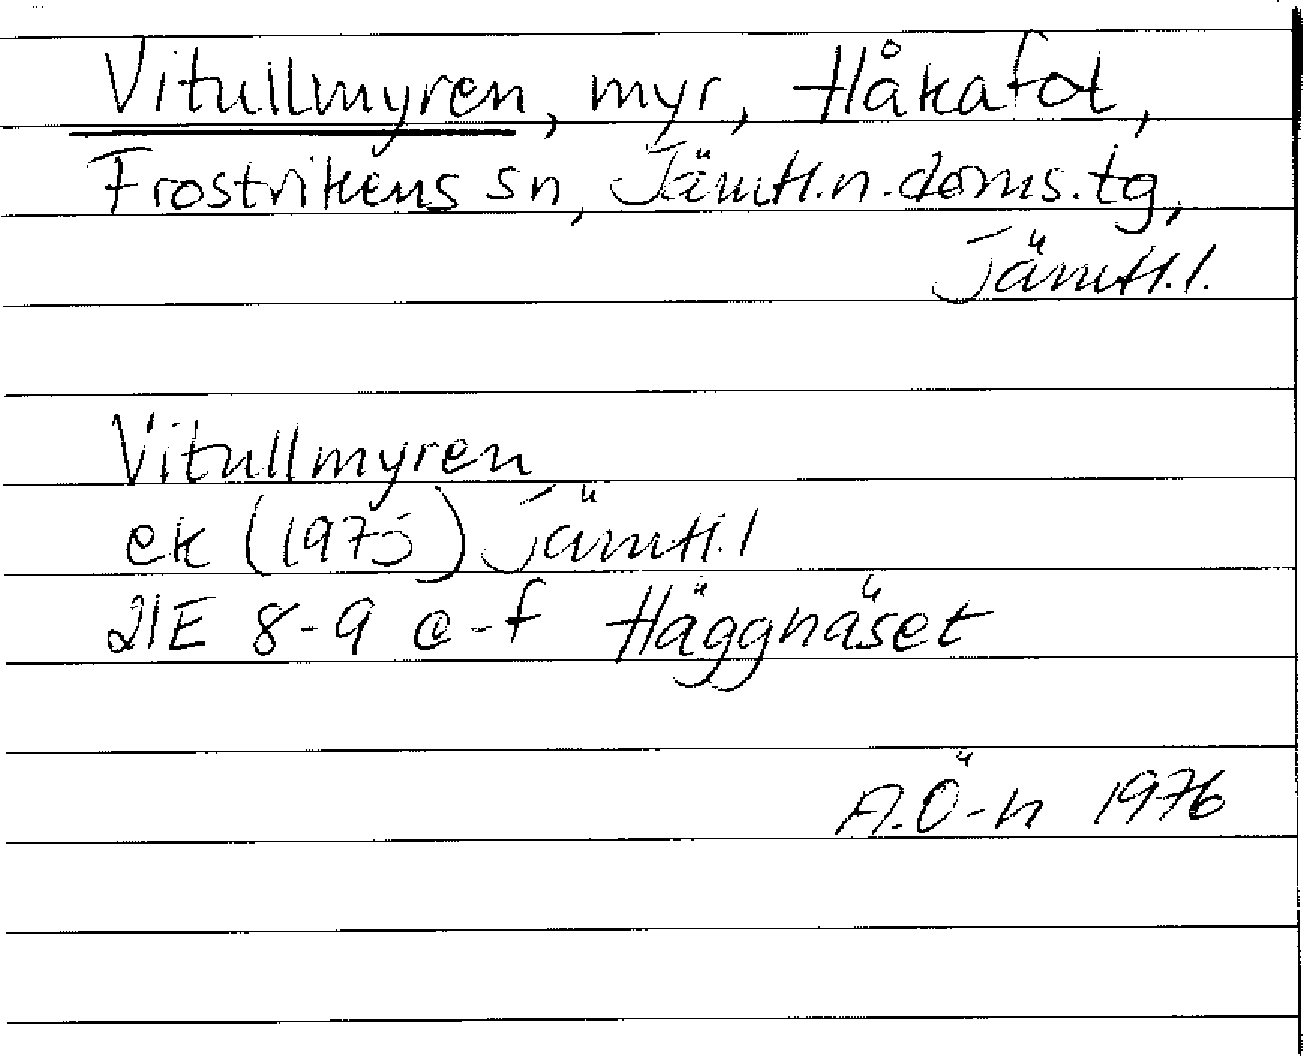 Vitullmyren, myr, Håkafot,
Frostvikens sn, Jämtl.n.doms.tg,
Jämtl.l.
Vitullmyren
ek (1975) Jämtl.l
21E 8-9 e-f Häggnäset
A.Ö-n 1976